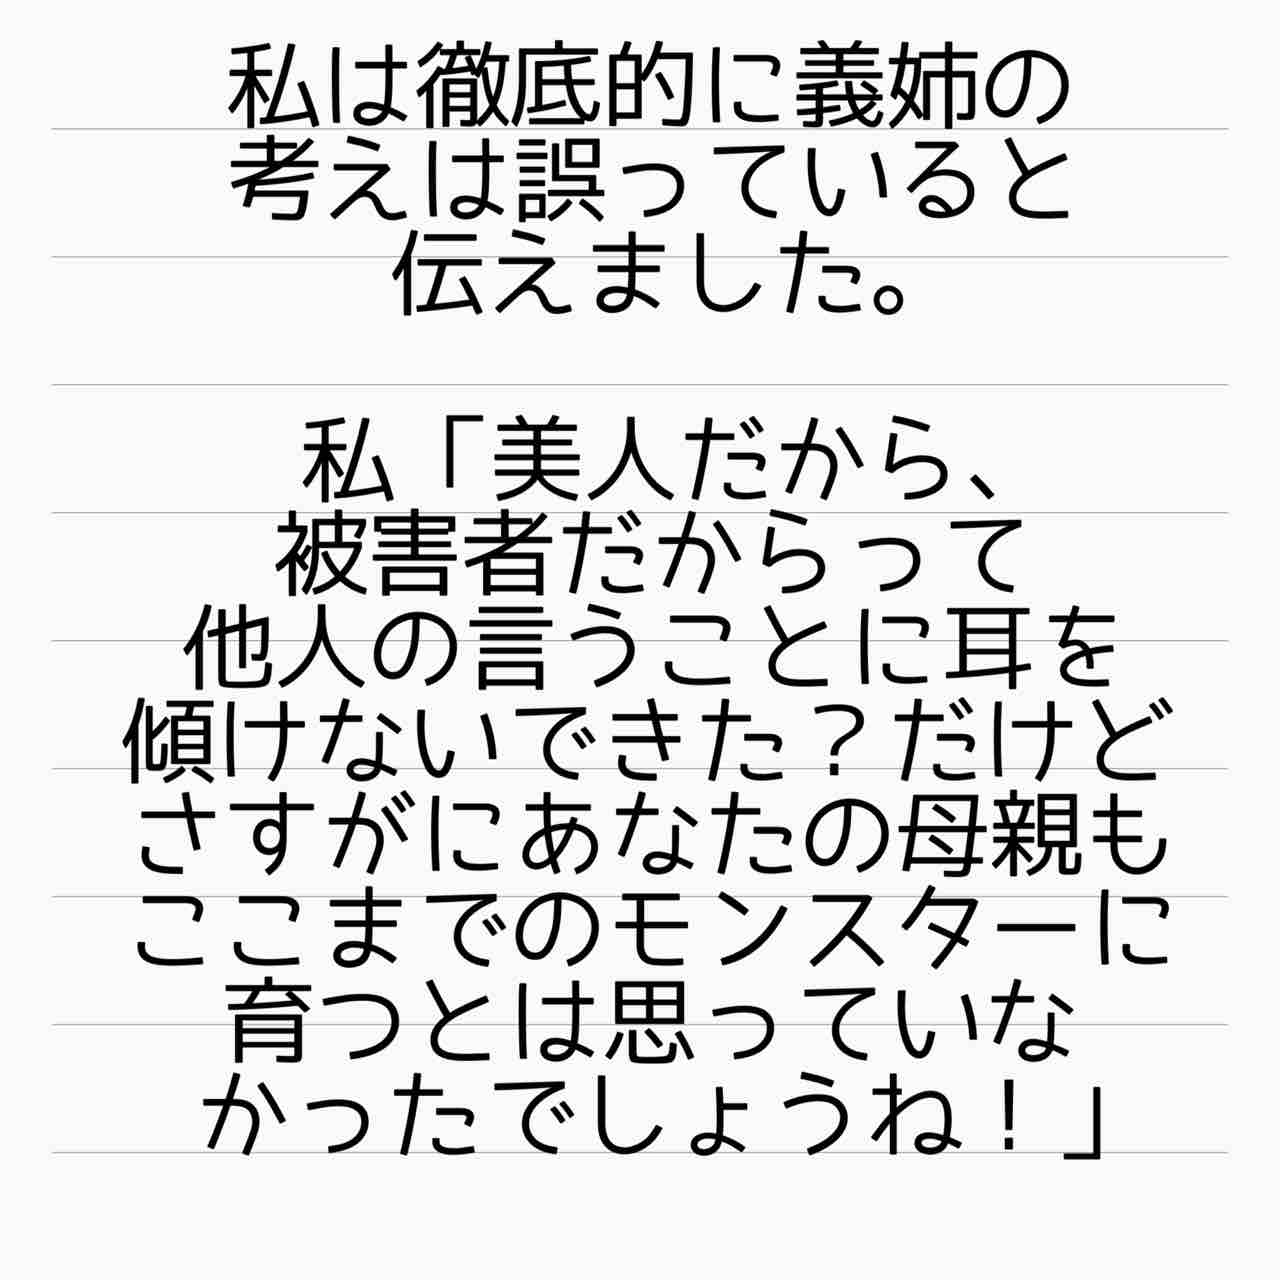 私は徹底的に義姉の
考えは誤っていると
伝えました。
私「美人だから、
被害者だからって
他人の言うことに耳を
傾けないできた？だけど
さすがにあなたの母親も
ここまでのモンスターに
育つとは思っていな
かったでしょうね！」